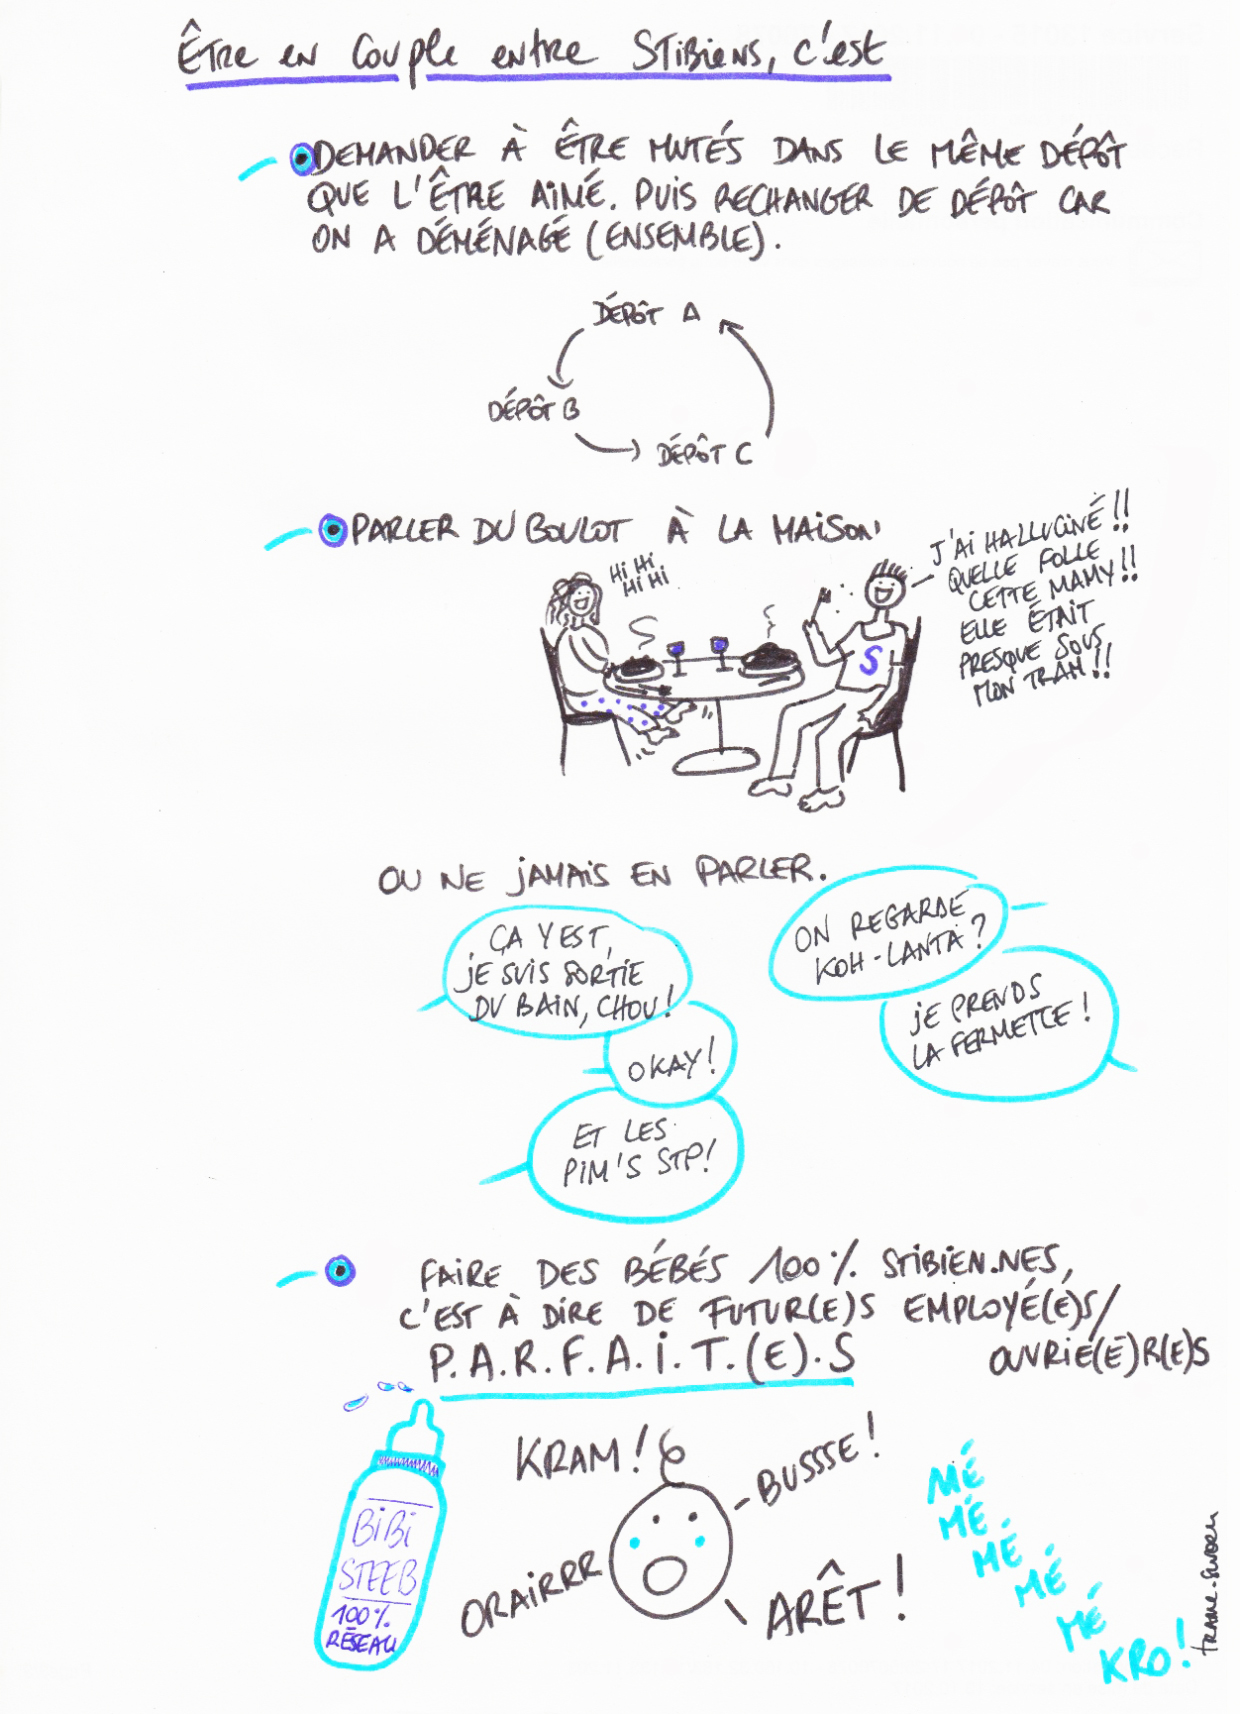 Être en couple entre STIBiens, c'est
DEMANDER À ÊTRE MUTÉS DANS LE MÊME DÉPÔT
QUE L'ÊTRE AIMÉ. PUIS RECHANGER DE DÉPÔT CAR
ON A DÉMÉNAGÉ (ENSEMBLE).
DÉPÔT A
DÉPÔT B
DÉPÔT C
PARLER DU BOULOT À LA MAISON
Hi Hi
Hi Hi
J'AI HALLUCINÉ!!
QUELLE FOLLE
CETTE MAMY!!
ELLE ÉTAIT
PRESQUE SOUS
MON TRAM!!
S
OU NE JAMAIS EN PARLER.
ÇA Y EST,
JE SUIS SORTIE
DU BAIN, CHOU!
OKAY!
ET LES
PIM'S STP!
ON REGARDE
KOH-LANTA?
JE PRENDS
LA FERMETTE!
FAIRE DES BÉBÉS 100% STIBIEN.NES,
C'EST À DIRE DE FUTUR(E)S EMPLOYÉ(É)S/
OUVRIÉ(É)R(E)S
P.A.R.F.A.I.T.(E).S
BiBi
STEEB
100%
RÉSEAU
KRAM!
BUSSSE!
ORAIRRR
ARÊT!
MÉ
MÉ
MÉ
MÉ
MÉ
KRO!